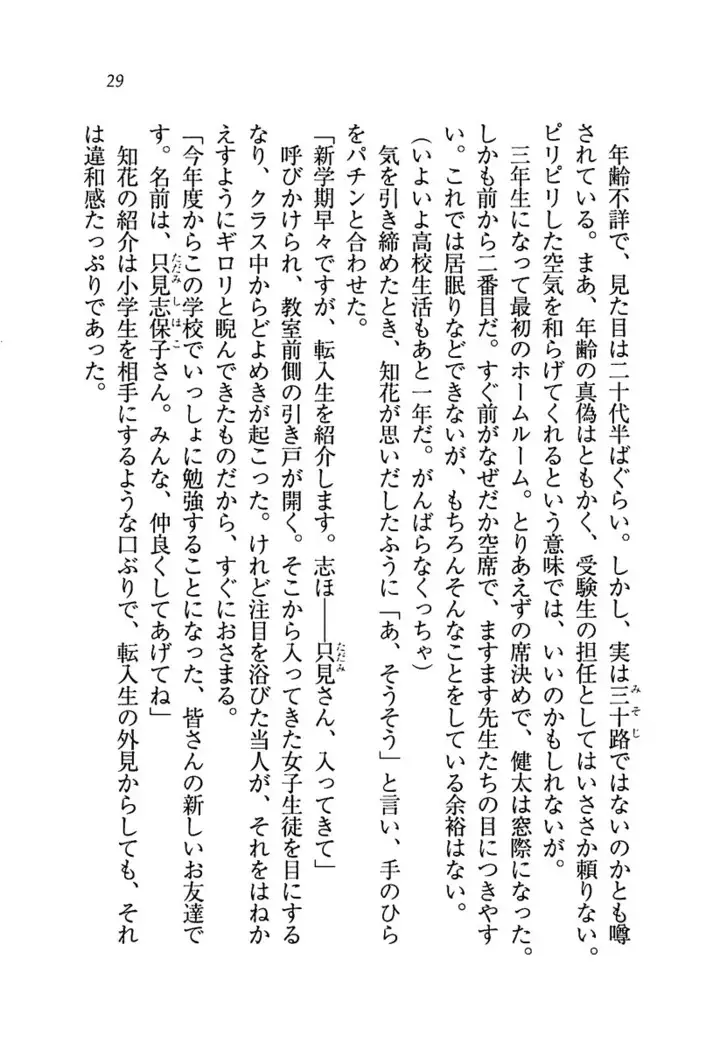 29
年齢不詳で、見た目は二十代半ばぐらい。しかし、実は三十路ではないのかとも噂
されている。まあ、年齢の真偽はともかく、受験生の担任としてはいささか頼りない。
ピリピリした空気を和らげてくれるという意味では、いいのかもしれないが。
三年生になって最初のホームルーム。とりあえずの席決めで、健太は窓際になった。
しかも前から二番目だ。すぐ前がなぜだか空席で、ますます先生たちの目につきやす
い。これでは居眠りなどできないが、もちろんそんなことをしている余裕はない。
(いよいよ高校生活もあと一年だ。がんばらなくっちゃ)
気を引き締めたとき、知花が思いだしたふうに「あ、そうそう」と言い、手のひら
をパチンと合わせた。
「新学期早々ですが、転入生を紹介します。志ほ――只見さん、入ってきて」
呼びかけられ、教室前側の引き戸が開く。そこから入ってきた女子生徒を目にする
なり、クラス中からどよめきが起こった。けれど注目を浴びた当人が、それをはねか
えすようにギロリと睨んできたものだから、すぐにおさまる。
「今年度からこの学校でいっしょに勉強することになった、皆さんの新しいお友達で
す。名前は、只見志保子さん。みんな、仲良くしてあげてね」
知花の紹介は小学生を相手にするような口ぶりで、転入生の外見からしても、それ
は違和感たっぷりであった。